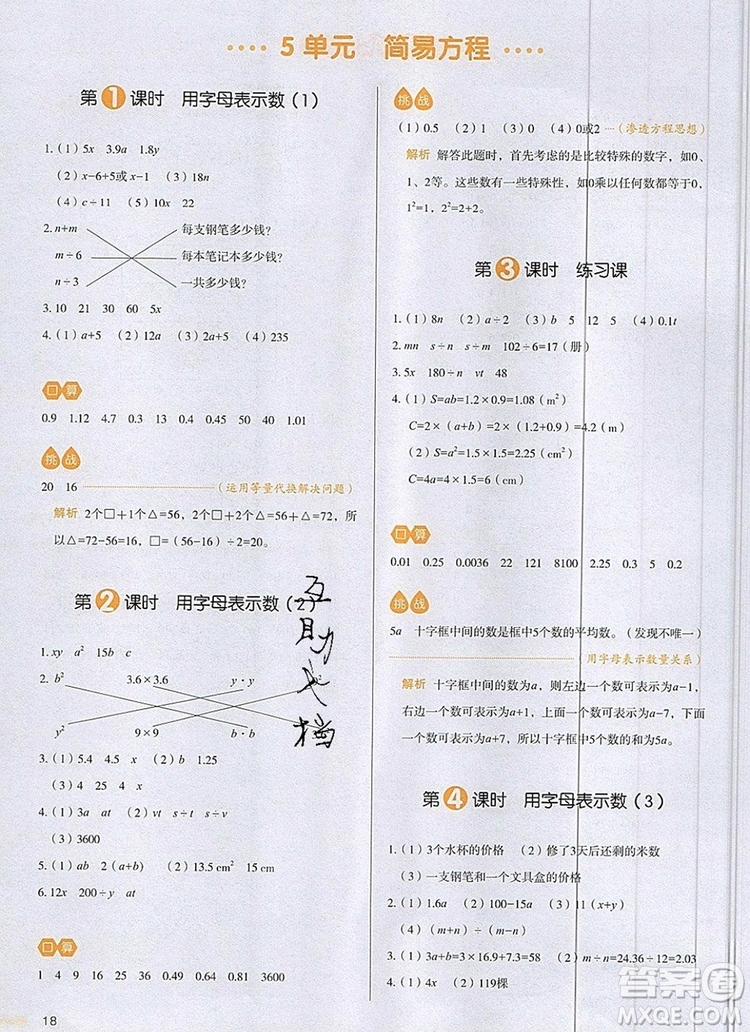 5 单元 简易方程
第1课时 用字母表示数（1）
1.（1）5x 3.9a 1.8y
（2）x－6+5或x－1 （3）18n
（4）c÷11 （5）10x 22
2. n+m 每支钢笔多少钱?
m÷6 每本笔记本多少钱?
n÷3 一共多少钱?
3. 10 21 30 60 5x
4.（1）a+5 （2）12a （3）2a+5 （4）235
口算
0.9 1.12 4.7 0.3 13 0.4 0.45 50 40 1.01
挑战
20 16 （运用等量代换解决问题）
解析 2个□+1个△=56，2个□+2个△=72，所
以△=72-56=16，□=（56-16）÷2=20。
第2课时 用字母表示数（2）
1. xy a² 15b c
2. b² 3.6×3.6 y·y
y² 9×9 b·b
3.（1）5.4 4.5 （2）x 1.25
（3）4 25 4 x
4.（1）3a at （2）vt s÷t s÷v
（3）3600
5.（1）ah÷2 （2）13.5 cm² 15 cm
6. 12x 200÷y 3600
口算
1 4 9 16 25 36 0.49 0.64 0.81 3600
18
挑战
（1）0.5 （2）1 （3）0 （4）0或2 （渗透方程思想）
解析 解答此题时，首先考虑的是比较特殊的数字，如0、
1、2等。这些数有一些特殊性，如0乘以任何数都等于0，
1²=1，2²=2+2。
第3课时 练习课
1.（1）8n （2）a÷2 （3）b 5 12 5 （4）0.1t
2. mn s÷n s÷m 102÷6=17（册）
3. 5x 180÷n vt 48
4.（1）S=ab=1.2×0.9=1.08（m²）
C=2×（a+b）=2×（1.2+0.9）=4.2（m）
（2）S=a²=1.5×1.5=2.25（m²）
C=4a=4×1.5=6（m）
口算
0.01 0.25 0.0036 22 121 8100 2.25 0.3 5 0.2
挑战
5a 十字框中间的数是框中5个数的平均数。（发现不唯一）
（用字母表示数量关系）
解析 十字框中间的数为a，则左边一个数可表示为a－1，
右边一个数可表示为a+1，上面一个数可表示为a－7，下面
一个数可表示为a+7，5个数的和可表示为5a。
第4课时 用字母表示数（3）
1.（1）3个水杯的价格 （2）修了3天后还剩的米数
（3）一支钢笔和一个文具盒的价格
2.（1）1.6a （2）100－15x （3）x÷（x+y）
（4）（m+n）－（m－n）
3.（1）3m+n=3×16.9+7.3=58 （2）m÷n=24.36÷12=2.03
4.（1）4x－1 （2）119棵
互
助
文
档
答案圈
MXQE.COM